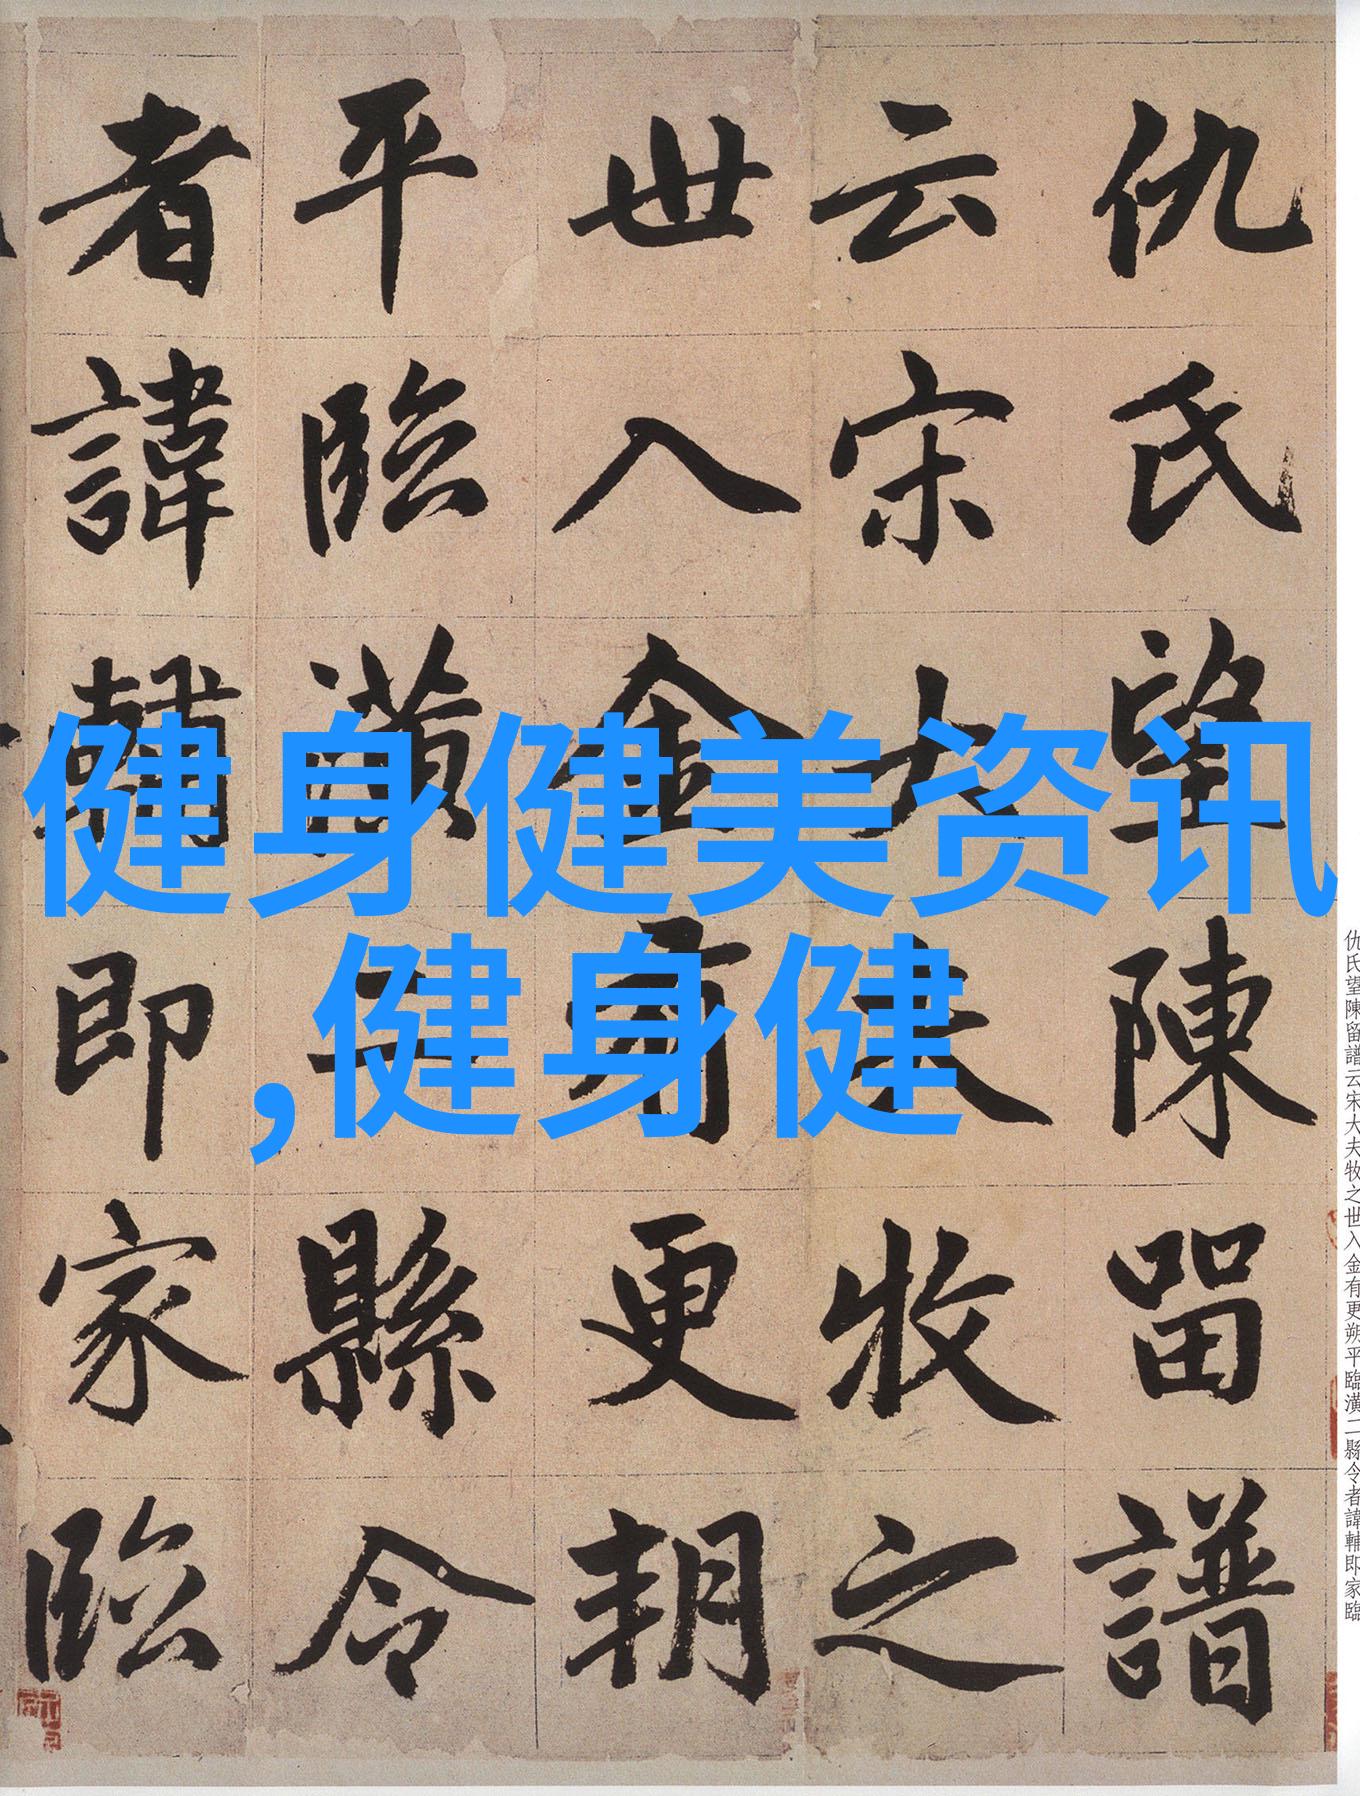 仇氏望陳留譜
云宋大夫牧之
世入金有更朔
平臨潢二縣令
者諱輔即家臨
健身健美资讯
,健身健
仇氏望陳留譜云宋大夫牧之世入金有更朔平臨潢二縣令者諱輔即家臨